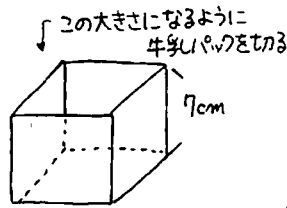 この大きさになるように
牛乳パックを切る
7cm